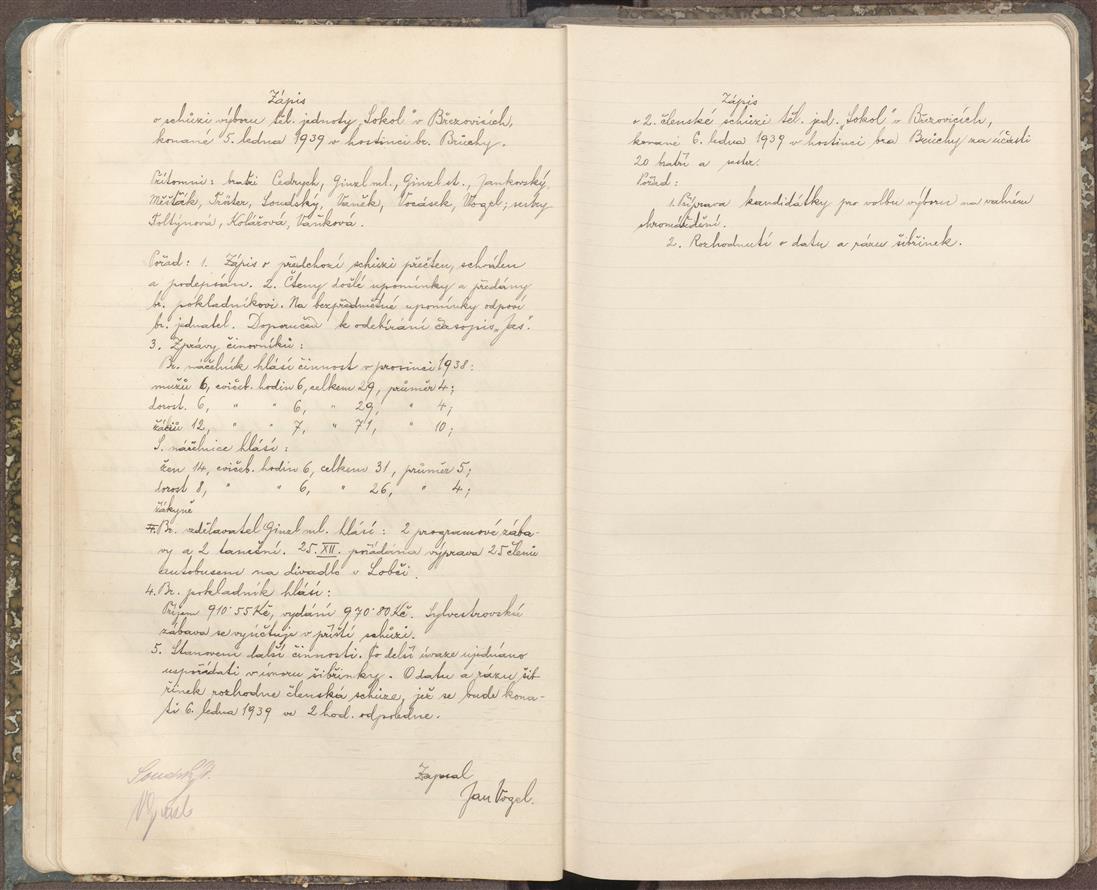 Zápis
o schůzi výboru těl. jednoty „Sokol" v Březovicích,
konané 5. ledna 1939 v hostinci br. Bruchy.
Přítomni: bratři Cedrych, Ginzl ml., Ginzl st., Jankovský,
Měšťák, Präter, Soudský, Vaněk, Vocásek, Vogel; sestry
Foltýnová, Kolářová, Vaňková.
Pořad: 1. Zápis o předchozí schůzi přečten, schválen
a podepsán. 2. Čteny došlé upomínky a předány
br. pokladníkovi. Na bezpředmětné upomínky odpoví
br. jednatel. Doporučen k odebírání časopis „Jas".
3. Zprávy činovníků:
Br. náčelník hlásí činnost v prosinci 1938:
mužů 6, cvičeb. hodin 6, celkem 29, průměr 4;
dorost. 6, " " 6, " 29, " 4;
žáků 12, " " 7, " 71, " 10;
S. náčelnice hlásí:
žen 14, cvičeb. hodin 6, celkem 31, průměr 5;
dorost 8, " " 6, " 26, " 4;
žákyně
Br. vzdělavatel Ginzl ml. hlásí: 2 programové zába-
vy a 2 taneční. 25. XII. pořádána výprava 25 členů
autobusem na divadlo v Lobči.
4. Br. pokladník hlásí:
Příjem 910·55 Kč, vydání 970·80 Kč. Sylvestrovská
zábava se vyúčtuje v příští schůzi.
5. Stanovení další činnosti. Po delší úvaze ujednáno
uspořádati v únoru šibřinky. O datu a rázu šib-
řinek rozhodne členská schůze, jež se bude kona-
ti 6. ledna 1939 ve 2 hod. odpoledne.
Zapsal
Jan Vogel.
Zápis
o 2. členské schůzi těl. jed. „Sokol" v Březovicích,
konané 6. ledna 1939 v hostinci bra Bruchy za účasti
20 bratří a sester.
Pořad:
1. Příprava kandidátky pro volbu výboru na valném
shromáždění.
2. Rozhodnutí o datu a rázu šibřinek.